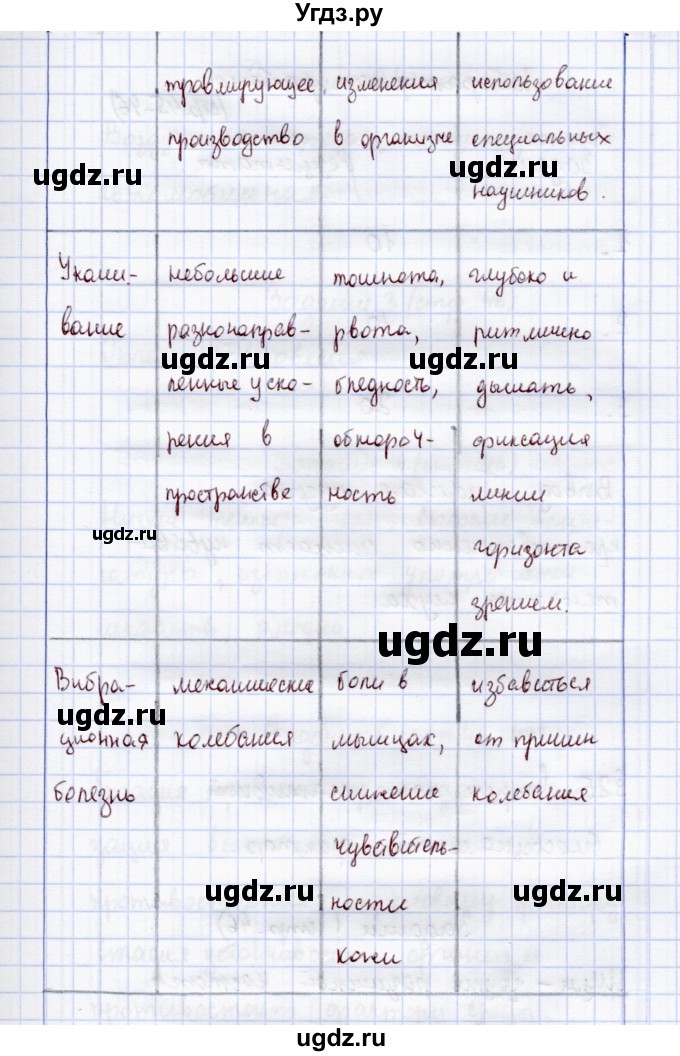 Угдз.ру
травмирующее изменения использование
производство в организме специальных
наушников.
ugdz.ru ugdz.ru
Укачи- небольшие тошнота, глубоко и
вание разнонаправ- рвота, ритмично
ugdz.ru ugdz.ru
ленные уско- бледность, дышать,
рения в обмороч- фиксация
пространстве ность линии
ugdz.ru
горизонта
зрением.
ugdz.ru
Вибра- механические боли в избавиться
ugdz.ru
ционная колебания мышцах, от причин
болезнь снижение колебания
чувствитель-
ugdz.ru ugdz.ru
ности
кожи
ugdz.ru